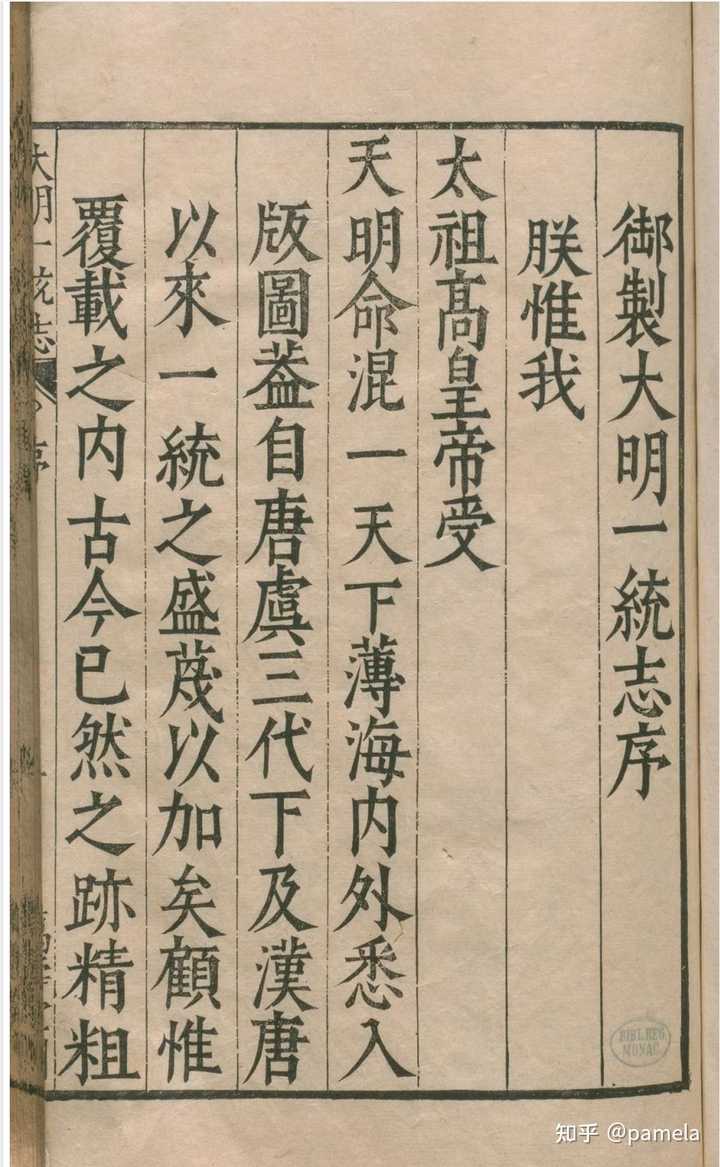 御製大明一統志序
朕惟我
太祖高皇帝受
天明命混一天下薄海內外悉入
版圖葢自唐虞三代下及漢唐
以來一統之盛蔑以加矣顧惟
覆載之內古今已然之跡精粗
大明一統志
序
BIBL.REG.
MONAC.
知乎 @pamela